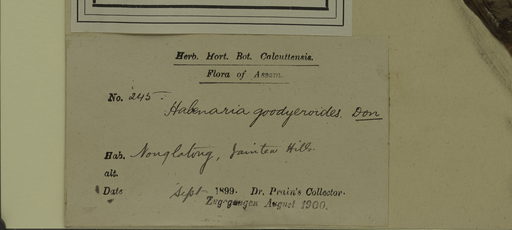 Herb. Hort. Bot. Calcuttensis.
Flora of Assam.
No. 245.
Habenaria goodyeroides. Don
Hab. Nonglatong, Jaintea Hills.
alt.
Date Sept 1899. Dr. Prain's Collector.
Zugegangen August 1900.